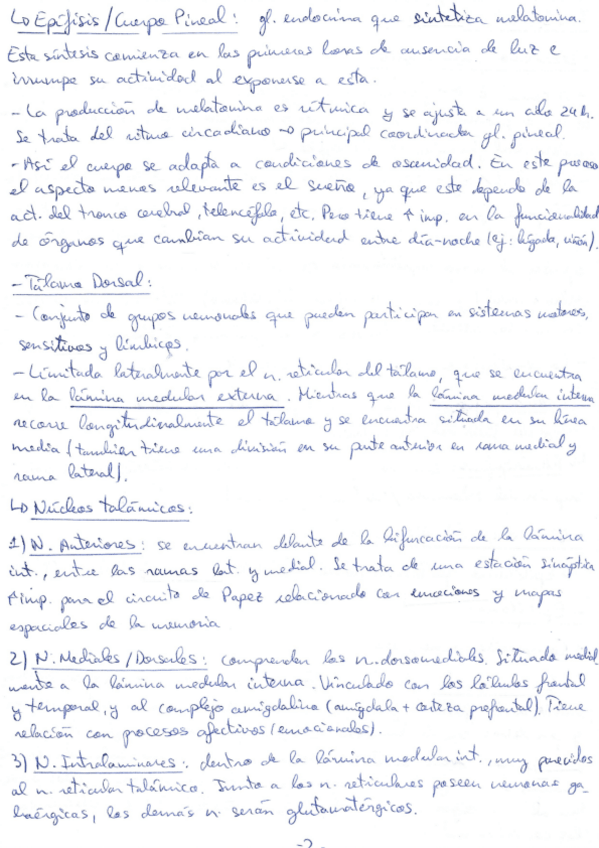 ↳ Epífisis/Cuerpo Pineal: gl. endocrina que sintetiza melatonina.
Esta síntesis comienza en las primeras horas de ausencia de luz e
irrumpe su actividad al exponerse a esta.
- La producción de melatonina es rítmica y se ajusta a un ciclo 24h.
Se trata del ritmo circadiano → principal coordinador gl. pineal.
- Así el cuerpo se adapta a condiciones de oscuridad. En este proceso
el aspecto menos relevante es el sueño, ya que este depende de la
act. del tronco cerebral, telencéfalo, etc. Pero tiene ↑ imp. en la funcionalidad
de órganos que cambian su actividad entre día-noche (ej: hígado, riñón).
- Tálamo Dorsal:
- Conjunto de grupos neuronales que pueden participar en sistemas motores,
sensitivos y límbicos.
- Limitada lateralmente por el n. reticular del tálamo, que se encuentra
en la lámina medular externa. Mientras que la lámina medular interna
recorre longitudinalmente el tálamo y se encuentra situada en su línea
media (también tiene una división en su parte anterior en rama medial y
rama lateral).
↳ Núcleos talámicos:
1) N. Anteriores: se encuentran delante de la bifurcación de la lámina
int., entre las ramas lat. y medial. Se trata de una estación sináptica
↑ imp. para el circuito de Papez relacionado con emociones y mapas
espaciales de la memoria
2) N. Mediales/Dorsales: comprenden los n. dorsomediales. Situado medial
mente a la lámina medular interna. Vinculado con los lóbulos frontal
y temporal, y al complejo amigdalino (amígdala + corteza prefrontal). Tiene
relación con procesos afectivos (emocionales).
3) N. Intralaminares: dentro de la lámina medular int., muy parecidos
al n. reticular talámico. Junto a los n. reticulares poseen neuronas ga-
baérgicas, los demás n. serán glutamatérgicos.
-2-